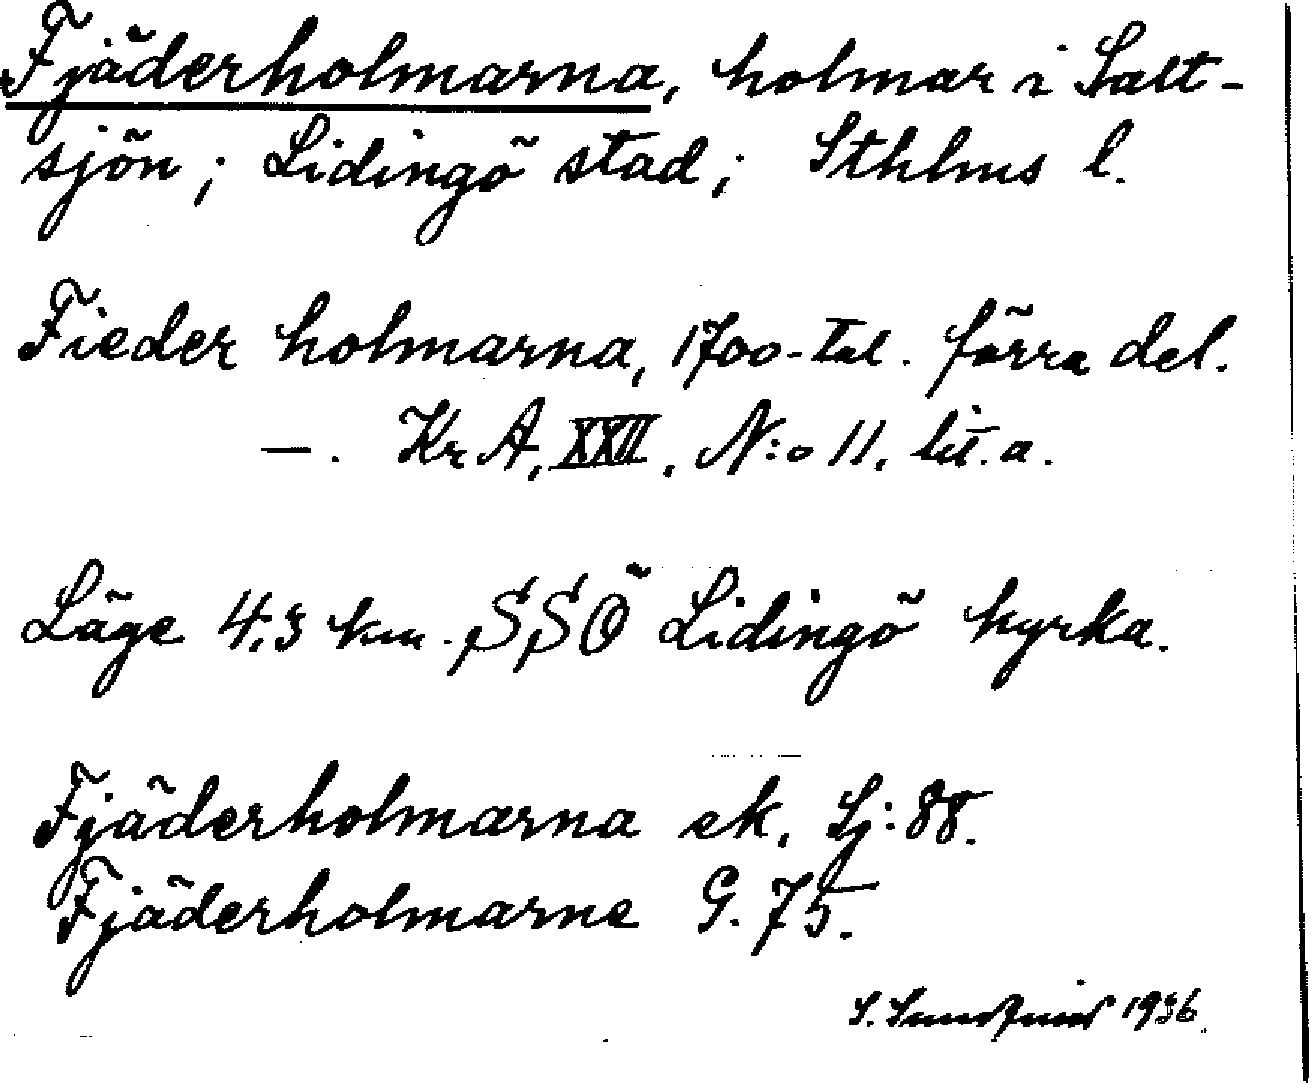 Fjäderholmarna, holmar i Salt-
sjön; Lidingö stad; Sthlms l.
Fieder holmarna, 1700-tal. förra del.
—. Kr A, XXII, N:o 11, lit. a.
Läge 4,3 km. SSÖ Lidingö kyrka.
Fjäderholmarna ek, Sj:88.
Fjäderholmarne G. 75.
S. 1936.